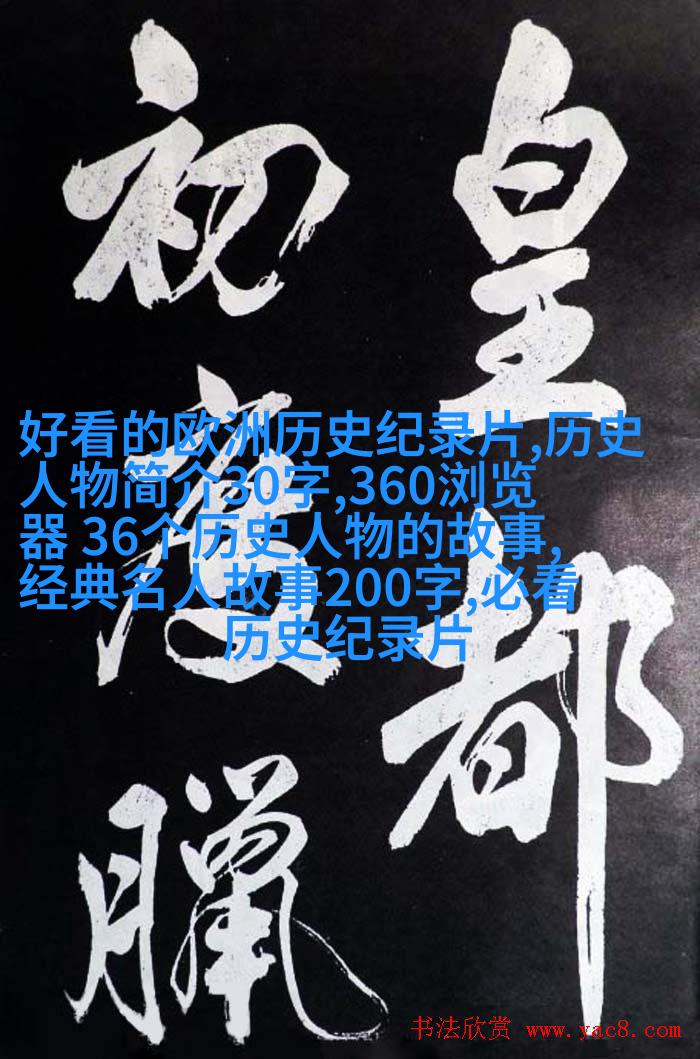 皇都
初度臘
好看的欧洲历史纪录片,历史
人物简介30字,360浏览
器 36个历史人物的故事,
经典名人故事200字,必看
历史纪录片
书法欣赏 www.yac8.com